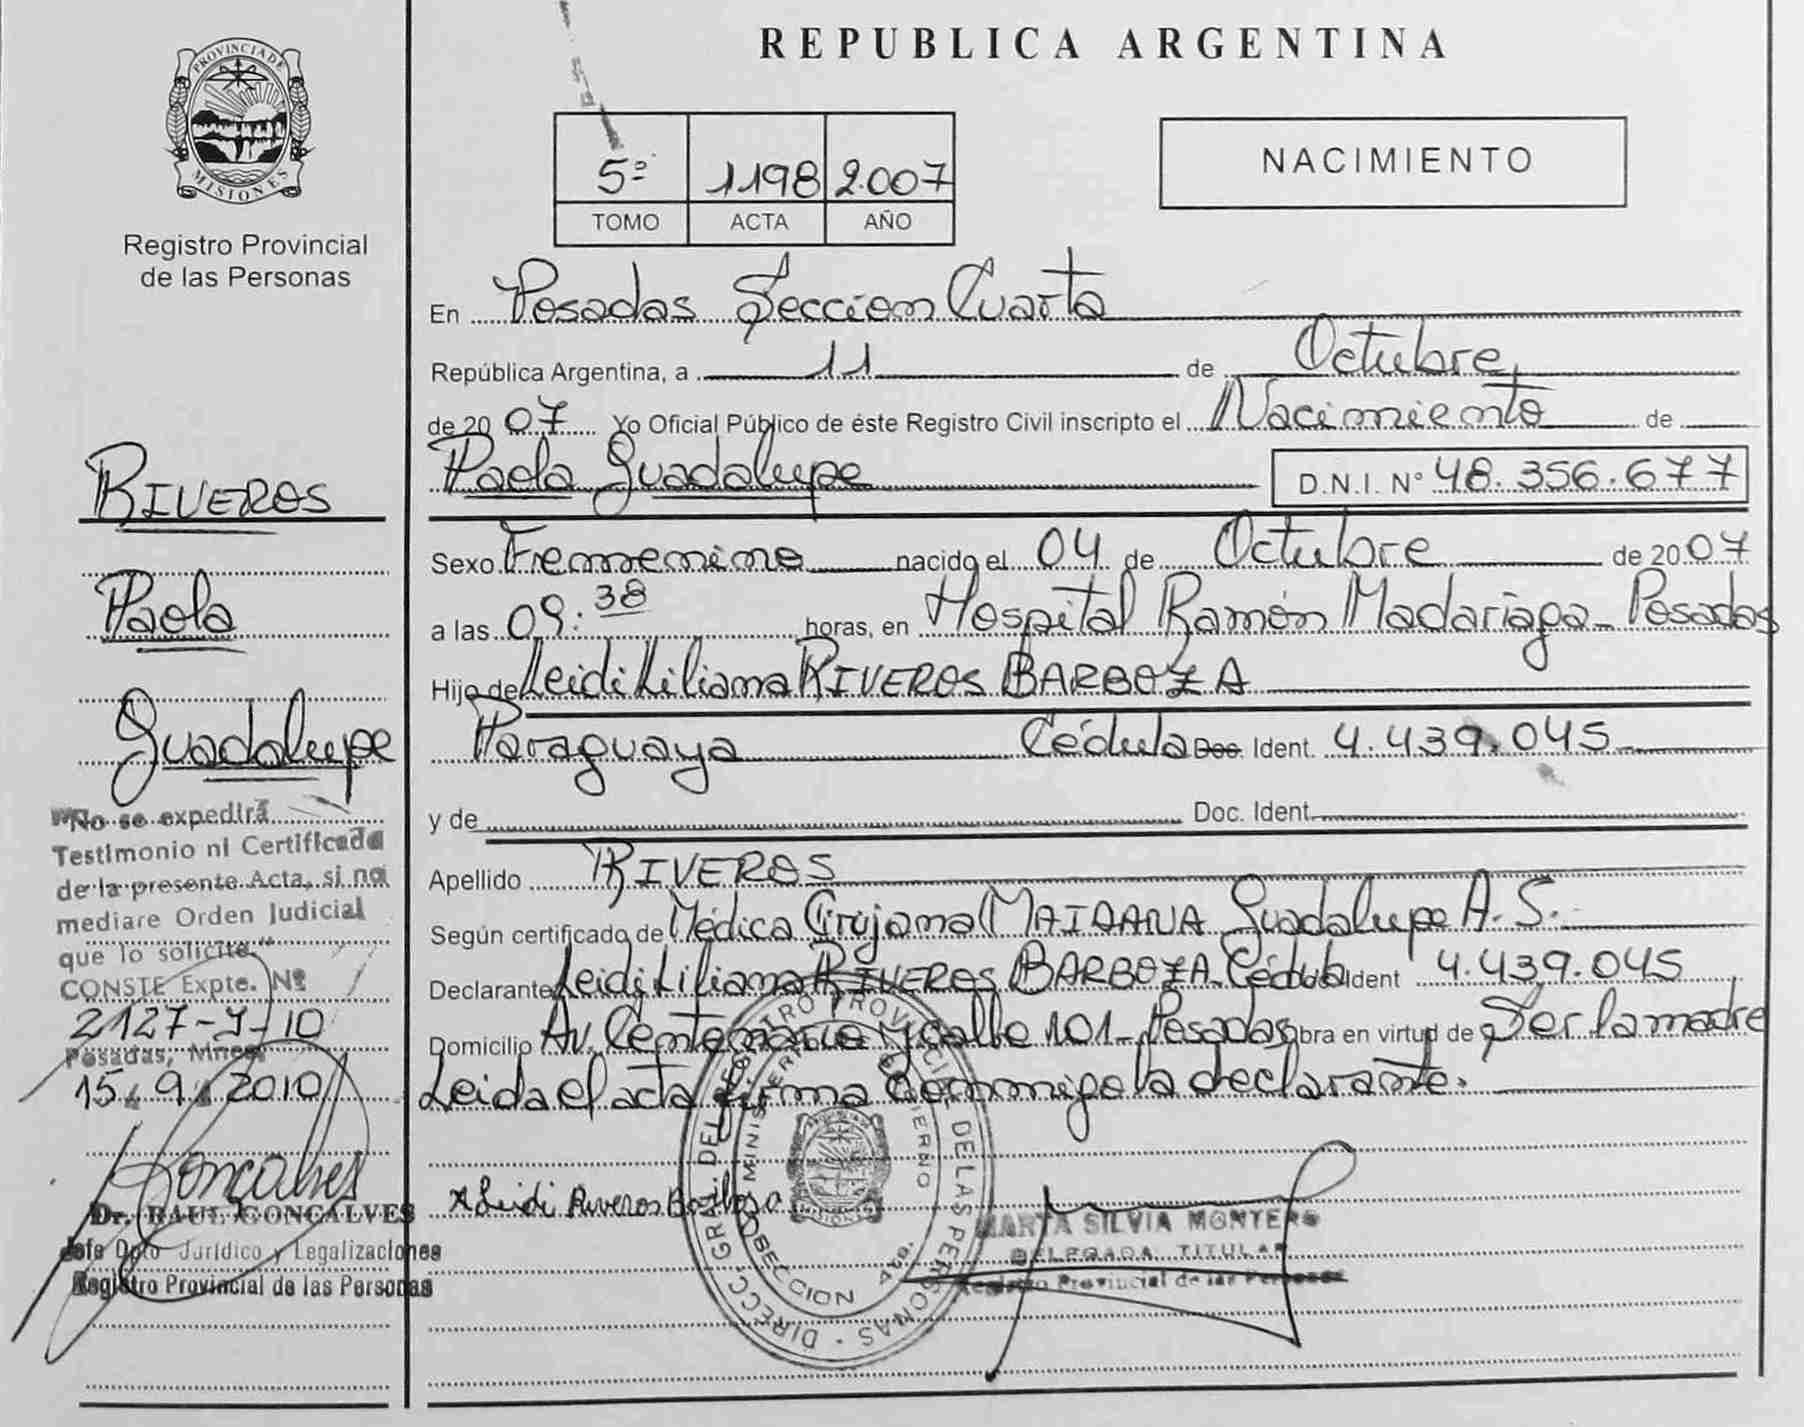 PROVINCIA DE
MISIONES
Registro Provincial
de las Personas
RIVEROS
Paola
Guadalupe
"No se expedirá
Testimonio ni Certificado
de la presente Acta, si no
mediare Orden Judicial
que lo solicite."
CONSTE Expte. Nº
2127-J-10
Posadas, Mnes.
15 9 2010
Goncalves
Dr. RAUL GONCALVES
Jefe Dpto Jurídico y Legalizaciones
Registro Provincial de las Personas
REPUBLICA ARGENTINA
5º 1198 2.007
TOMO ACTA AÑO
NACIMIENTO
En Posadas Seccion Cuarta
República Argentina, a 11 de Octubre
de 2007 Yo Oficial Público de éste Registro Civil inscripto el Nacimiento de
Paola Guadalupe D.N.I. N° 48.356.677
Sexo Femenino nacido el 04 de Octubre de 2007
a las 09:38 horas, en Hospital Ramón Madariaga - Posadas
Hijo de Leidi Liliana RIVEROS BARBOZA
Paraguaya Cédula Doc. Ident. 4.439.045
y de Doc. Ident.
Apellido RIVEROS
Según certificado de Médica Cirujana MAIDANA Guadalupe A. S.
Declarante Leidi Liliana RIVEROS BARBOZA - Cédula Ident 4.439.045
Domicilio Av. Centenario y calle 101 - Posadas obra en virtud de Ser la madre
Leida el acta firma conmigo la declarante.
x Leidi Riveros Barboza
MARTA SILVIA MONTERO
DELEGADA TITULAR
Registro Provincial de las Personas
DIRECC. GRAL. DEL REGISTRO PROVINCIAL DE LAS PERSONAS